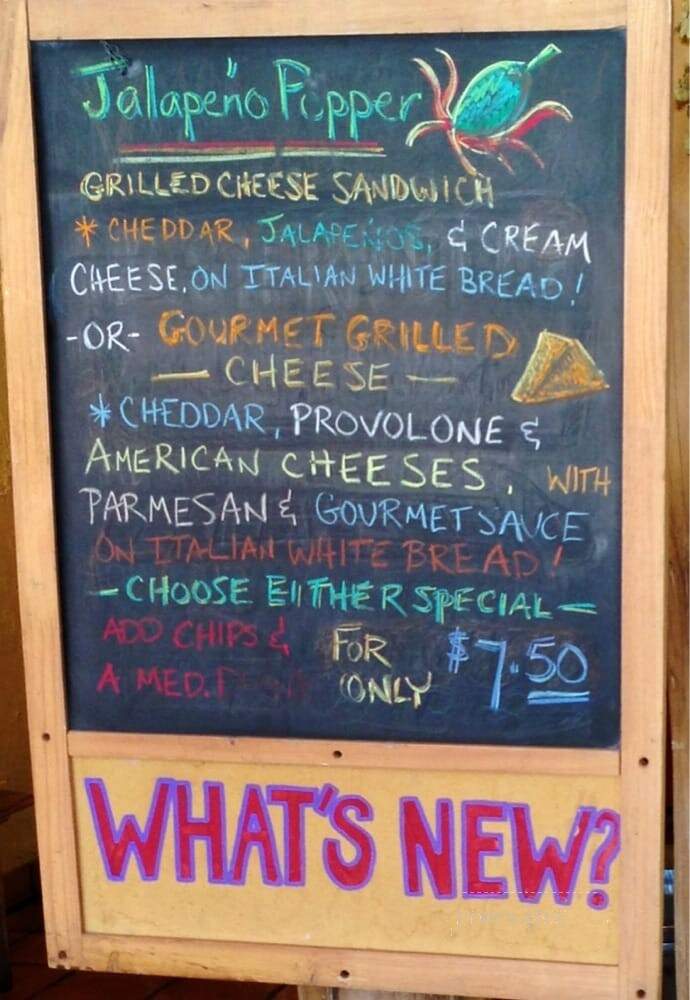 Jalapeño Popper
GRILLED CHEESE SANDWICH
* CHEDDAR, JALAPEÑOS, & CREAM
CHEESE, ON ITALIAN WHITE BREAD!
-OR- GOURMET GRILLED
— CHEESE —
* CHEDDAR, PROVOLONE &
AMERICAN CHEESES, WITH
PARMESAN & GOURMET SAUCE
ON ITALIAN WHITE BREAD!
- CHOOSE EITHER SPECIAL -
ADD CHIPS & FOR $7.50
A MED. ONLY
WHAT'S NEW?